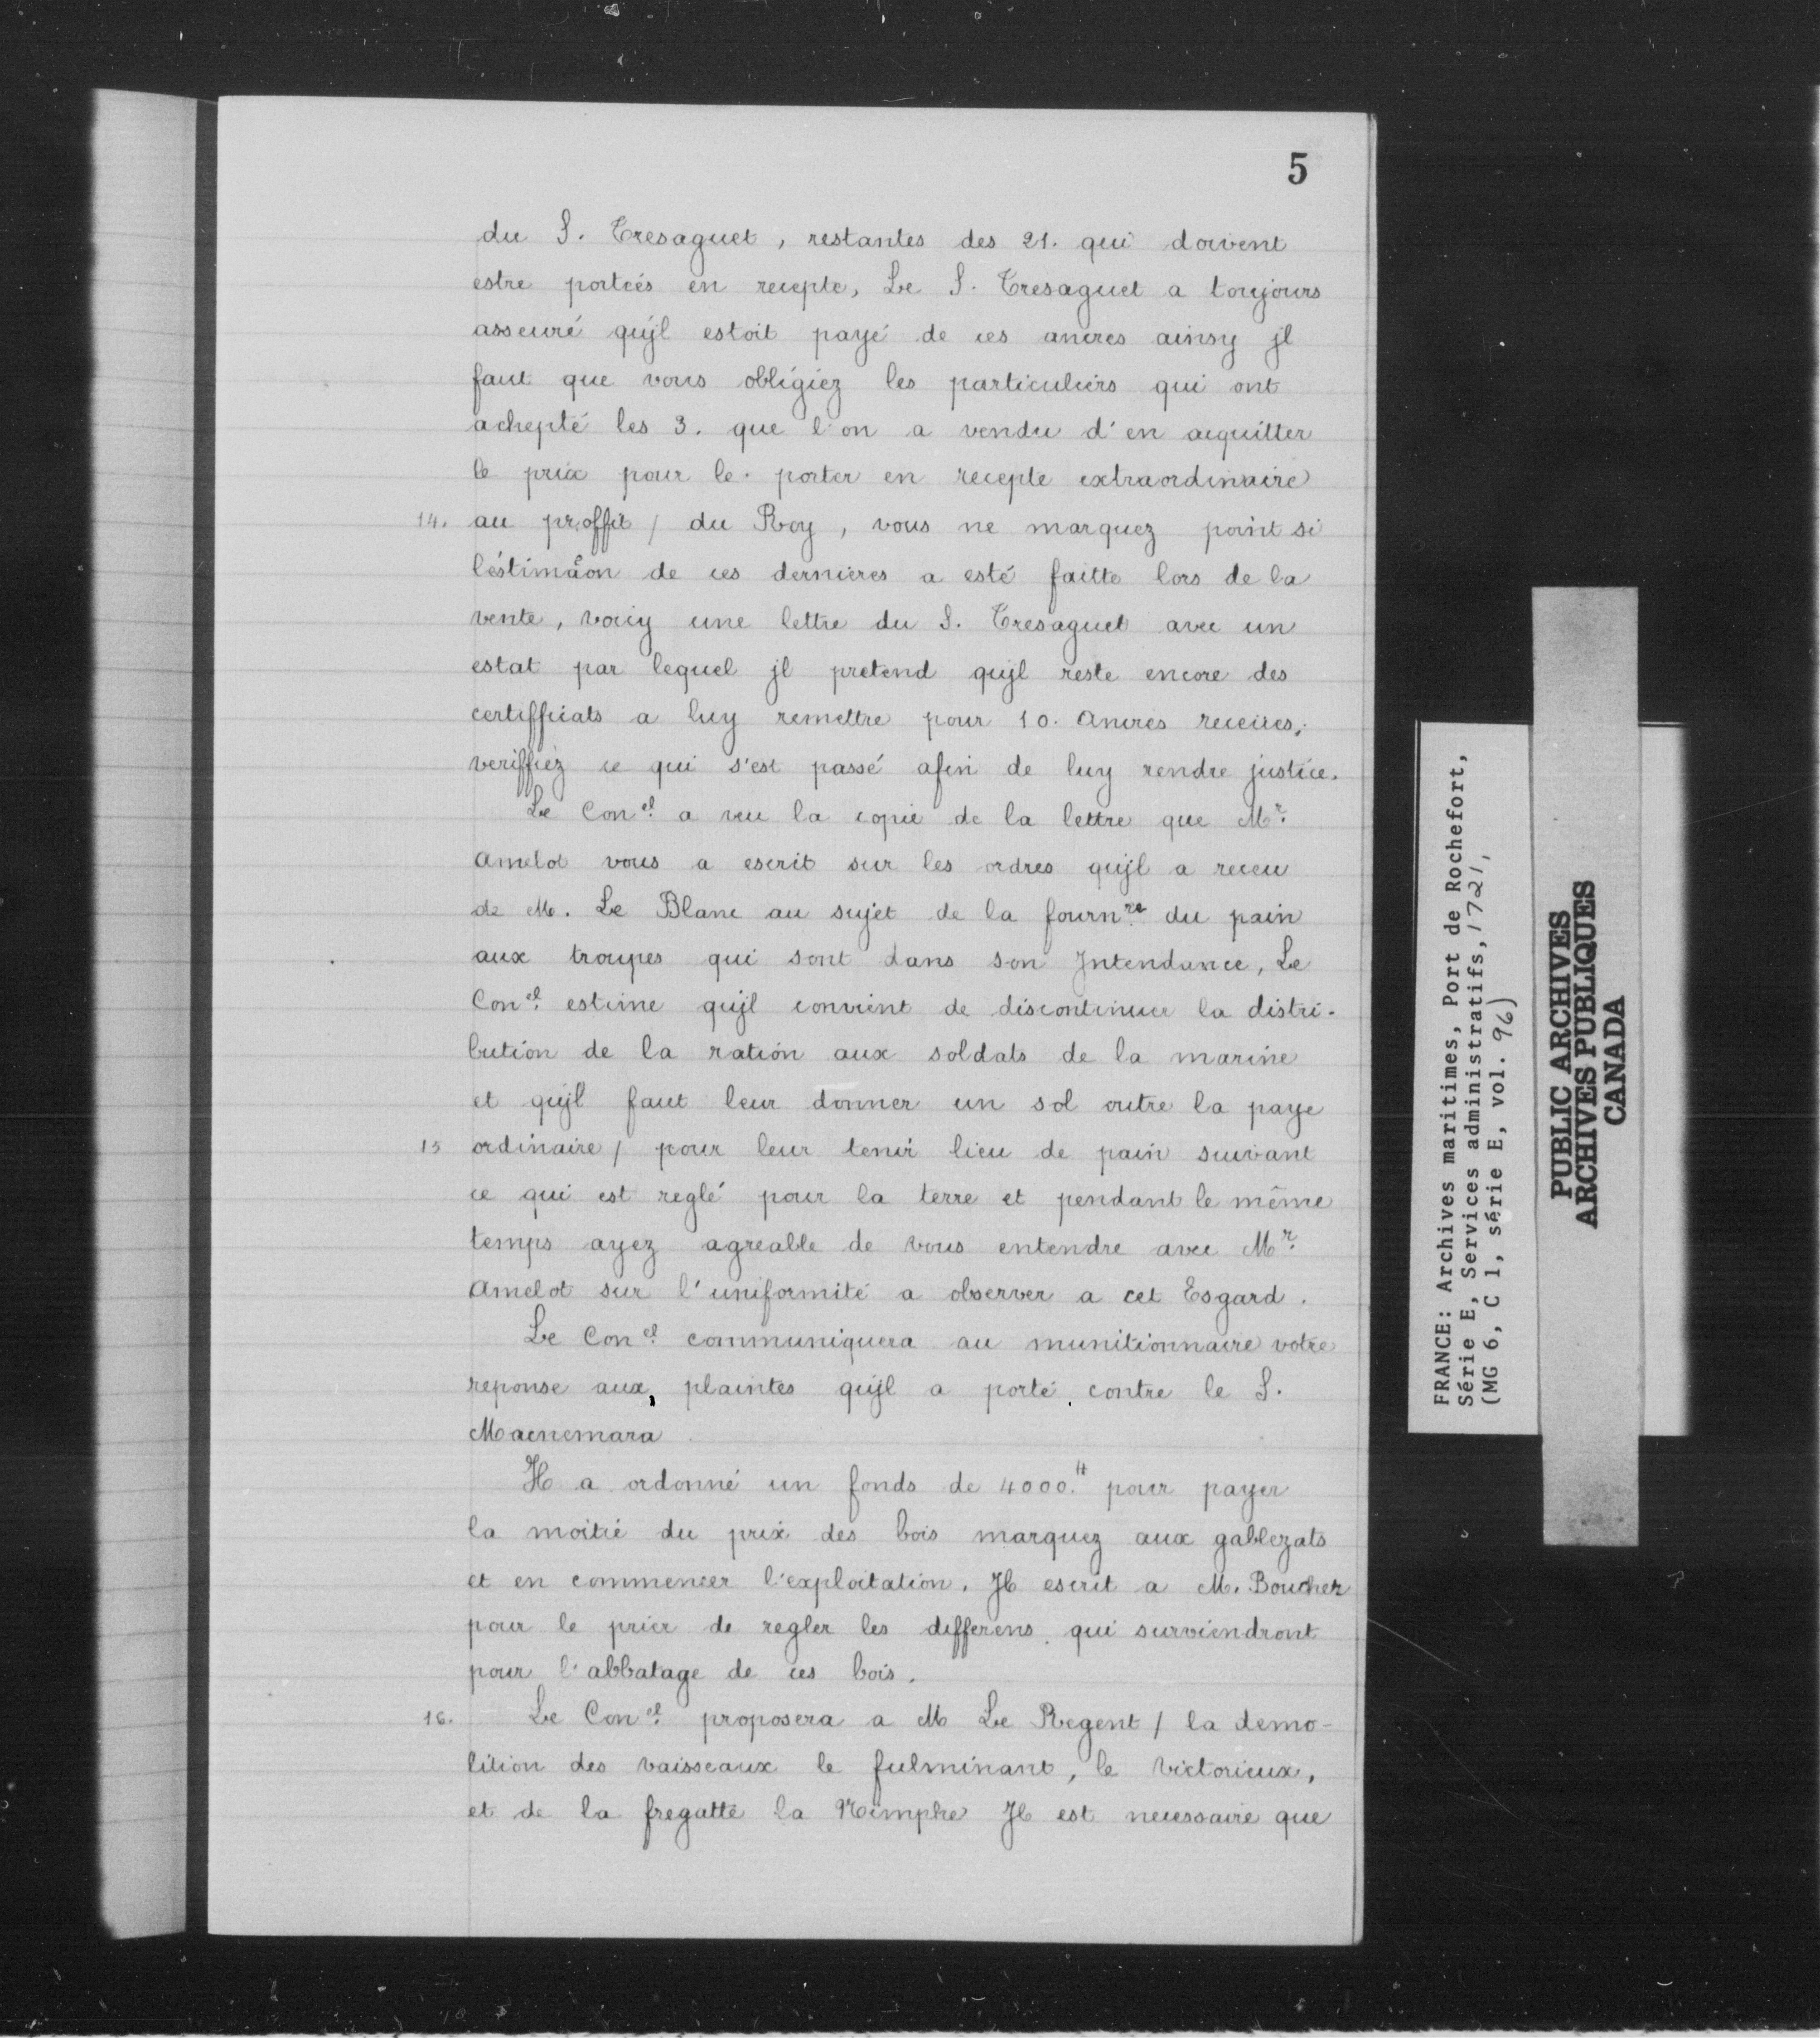 5
du S. Tresaguet, restantes des 21. qui doivent
estre portéés en recepte, Le S. Tresaguet a toujours
asseuré qujl estoit payé de ces ancres ainsy jl
faut que vous obligiez les particuliers qui ont
achepté les 3. que l'on a vendu d'en acquitter
le prix pour le porter en recepte extraordinaire
14. au proffit / du Roy, vous ne marquez point si
léstimâon de ces dernieres a esté faitte lors de la
vente, voicy une lettre du S. Tresaguet avec un
estat par lequel jl pretend qujl reste encore des
certifficats a luy remettre pour 10. Ancres receües,
veriffiéz ce qui s'est passé afin de luy rendre justice.
Le Con.el a veu la copie de la lettre que Mr.
Amelot vous a escrit sur les ordres qujl a receu
de M. Le Blanc au sujet de la fourn.re du pain
aux troupes qui sont dans son Jntendance, Le
Con.el estime qujl convient de discontinuer la distri-
bution de la ration aux soldats de la marine
et qujl faut leur donner un sol outre la paye
15 ordinaire / pour leur tenir lieu de pain suivant
ce qui est reglé pour la terre et pendant le même
temps ayez agreable de vous entendre avec Mr.
Amelot sur l'uniformité a observer a cet Esgard.
Le Con.el communiquera au munitionnaire votre
reponse aux plaintes qujl a porté contre le S.
Macnemara
Jl a ordonné un fonds de 4000.tt pour payer
la moitié du prix des bois marquez aux gablezats
et en commencer l'exploitation. Jl escrit a M. Boucher
pour le prier de regler les differens qui surviendront
pour l'abbatage de ces bois.
16. Le Con.el proposera a M Le Regent / la demo-
lition des vaisseaux le fulminant, le victorieux,
et de la fregatte la Nimphe Jl est necessaire que
FRANCE: Archives maritimes, Port de Rochefort,
Série E, Services administratifs, 1721,
(MG 6, C 1, série E, vol. 96)
PUBLIC ARCHIVES
ARCHIVES PUBLIQUES
CANADA